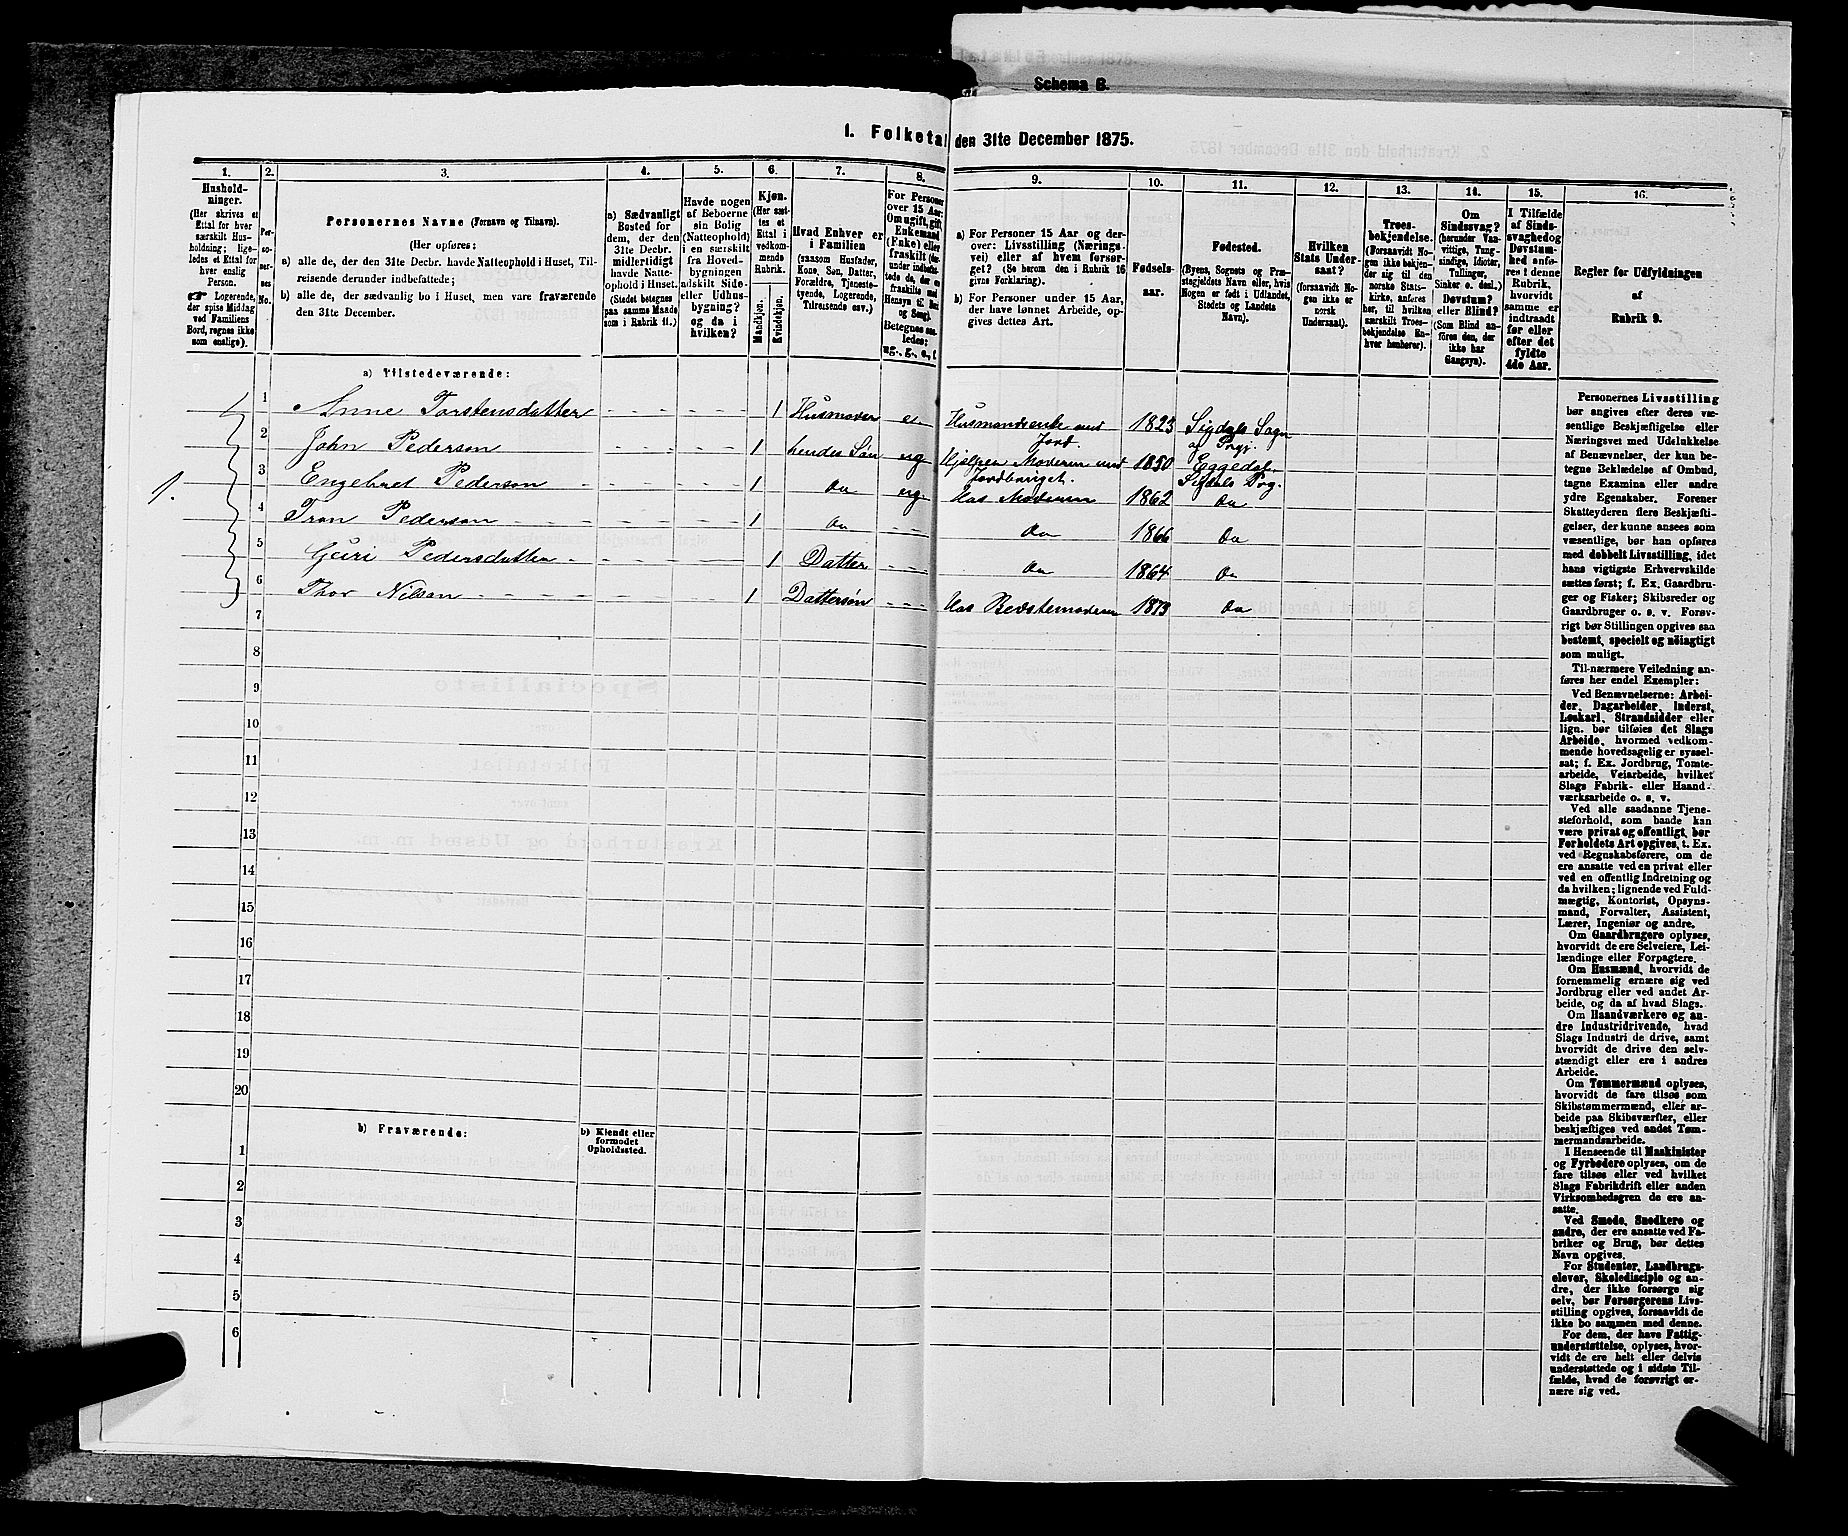 Schema B.
1. Folketal den 31te December 1875.
1.
Hushold-
ninger.
(Her skrives et
Ettal for hver
særskilt Hus-
holdning; lige-
ledes et Ettal
for hver
enslig
Person.
☞ Logerende,
der spise Middag
ved Familiens
Bord, regnes ikke
som enslige).
2.
Per-
so-
ner-
nes
No.
3.
Personernes Navne (Fornavn og Tilnavn).
(Her opføres:
a) alle de, der den 31te Decbr. havde Natteophold i Huset, Til-
reisende derunder indbefattede;
b) alle de, der sædvanlig bo i Huset, men vare fraværende
den 31te December.
4.
a) Sædvanligt
Bosted for
dem, der den
31te Decbr.
midlertidigt
havde Natte-
ophold i Huset.
(Stedet betegnes
paa samme Maade
som i Rubrik 11.)
5.
Havde nogen
af Beboerne
sin Bolig
(Natteophold)
i en særskilt
fra Hoved-
bygningen
adskilt Side-
eller Udhus-
bygning?
og da i
hvilken?
6.
Kjøn.
(Her sæt-
tes et
Ettal i
vedkom-
mende
Rubrik.
Mandkjøn.
Kvindekjøn.
7.
Hvad Enhver er
i Familien
(saasom Husfader,
Kone, Søn, Datter,
Forældre, Tjeneste-
tyende, Logerende,
Tilreisende osv.)
8.
For Personer
over 15 Aar:
Om ugift, gift,
Enkemand
(Enke) eller
fraskilt
Betegnes saa-
ledes:
ug., g., e., f.
9.
a) For Personer 15 Aar og der-
over: Livsstilling (Nærings-
vei) eller af hvem forsør-
get? (Se herom den i Rubrik 16
givne Forklaring).
b) For Personer under 15 Aar,
der have lønnet Arbeide, op-
gives dettes Art.
10.
Fødsels-
aar.
11.
Fødested.
(Byens, Sognets og Præ-
stegjeldets Navn eller, hvis
Nogen er født i Udlandet,
Stedets og Landets
Navn).
12.
Hvilken
Stats Under-
saat?
(forsaavidt No-
gen ikke er
norsk
Undersaat).
13.
Troes-
bekjendelse.
(Forsaavidt No-
gen ikke bekjen-
der sig til den
norske Stats-
kirke, anføres
her, til hvilken
særskilt Troes-
bekjendelse En-
hver henhører).
14.
Om
Sindssvag?
(herunder Van-
vittige, Tung-
sindige, Idioter,
Tullinger,
Sinker o. desl.)
Døvstum?
eller Blind?
(Som Blind an-
føres den, der
ikke har
Gangsyn).
15.
I Tilfælde
af Sinds-
svaghed og
Døvstum-
hed anfø-
res i denne
Rubrik,
hvorvidt
samme er
indtraadt
før eller
efter det
fyldte
4de Aar.
16.
Regler for Udfyldningen
af
Rubrik 9.
a) Tilstedeværende:
1 Anne Torstensdatter 1 Husmoder e. Husmandsenke med Jord. 1823 Sigdals Sogn og Prgj.
2 John Pederson 1 hendes Søn ug Hjelper Moderen med Jordbruget. 1850 Eggedal Sigdals Prg.
1.
3 Engebret Pederson 1 Do ug. Hos Moderen 1862 Do
4 Tron Pederson 1 Do Do 1866 Do
5 Guri Pedersdatter 1 Datter Do 1864 Do
6 Thor Nilson 1 Dattersøn Hos Bedstemoderen 1873 Do
7
8
9
10
11
12
13
14
15
16
17
18
19
20
b) Fraværende:
b) Kjendt eller
formodet
Opholdssted.
1
2
3
4
5
6
Personernes Livsstilling
bør angives efter deres væ-
sentlige Beskjæftigelse eller
Næringsvei med Udelukkelse
af Benævnelser, der kun be-
tegne Beklædelse af Ombud,
tagne Examina eller andre
ydre Egenskaber. Forener
Skatteyderen flere Beskjæfti-
gelser, der kunne ansees som
væsentlige, bør han opføres
med dobbelt Livsstilling, idet
hans vigtigste Erhvervskilde
sættes først; f. Ex. Gaardbru-
ger og Fisker; Skibsreder og
Gaardbruger o. s. v. Forøv-
rigt bør Stillingen opgives saa
bestemt, specielt og nøiagtigt
som muligt.
Til nærmere Veiledning an-
føres her endel Exempler:
Ved Benævnelserne: Arbei-
der, Dagarbeider, Inderst,
Løskarl, Strandsidder eller
lign. bør tilføies det Slags
Arbeide, hvormed vedkom-
mende hovedsagelig er syssel-
sat; f. Ex. Jordbrug, Tomte-
arbeide, Veiarbeide, hvilket
Slags Fabrik- eller Haand-
værksarbeide o. s. v.
Ved alle saadanne Tjene-
steforhold, som baade kan
være privat og offentligt, bør
Forholdets Art opgives, t. Ex.
ved Regnskabsførere, om de
ere ansatte ved en privat eller
ved en offentlig Indretning og
da hvilken; lignende ved Fuld-
mægtig, Kontorist, Opsyns-
mand, Forvalter, Assistent,
Lærer, Ingeniør og andre.
Om Gaardbrugere oplyses,
hvorvidt de ere Selveiere, Lei-
lændinge eller Forpagtere.
Om Husmænd, hvorvidt de
fornemmelig ernære sig ved
Jordbrug eller ved andet Ar-
beide, og da af hvad Slags.
Om Haandværkere og an-
dre Industridrivende, hvad
Slags Industri de drive, samt
hvorvidt de drive den selv-
stændigt eller ere i andres
Arbeide.
Om Tømmermænd oplyses,
hvorvidt de fare tilsøs som
Skibstømmermænd, eller ar-
beide paa Skibsværfter, eller
beskjæftiges ved andet Tøm-
mermandsarbeide.
I Henseende til Maskinister
og Fyrbødere oplyses, om de
fare tilsøs eller ved hvilket
Slags Fabrikdrift eller anden
Virksomhedsgren de ere an-
satte.
Ved Smede, Snedkere og
andre, der ere ansatte ved Fa-
briker og Brug, bør dettes
Navn opgives.
For Studenter, Landbrugs-
elever, Skoledisciple og an-
dre, der ikke forsørge sig
selv, bør Forsørgerens Livs-
stilling opgives, forsaavidt de
ikke bo sammen med denne.
For dem, der have Fattig-
understøttelse, oplyses, hvor-
vidt de ere helt eller delvis
understøttede og i sidste Til-
fælde, hvad de forøvrigt er-
nære sig ved.